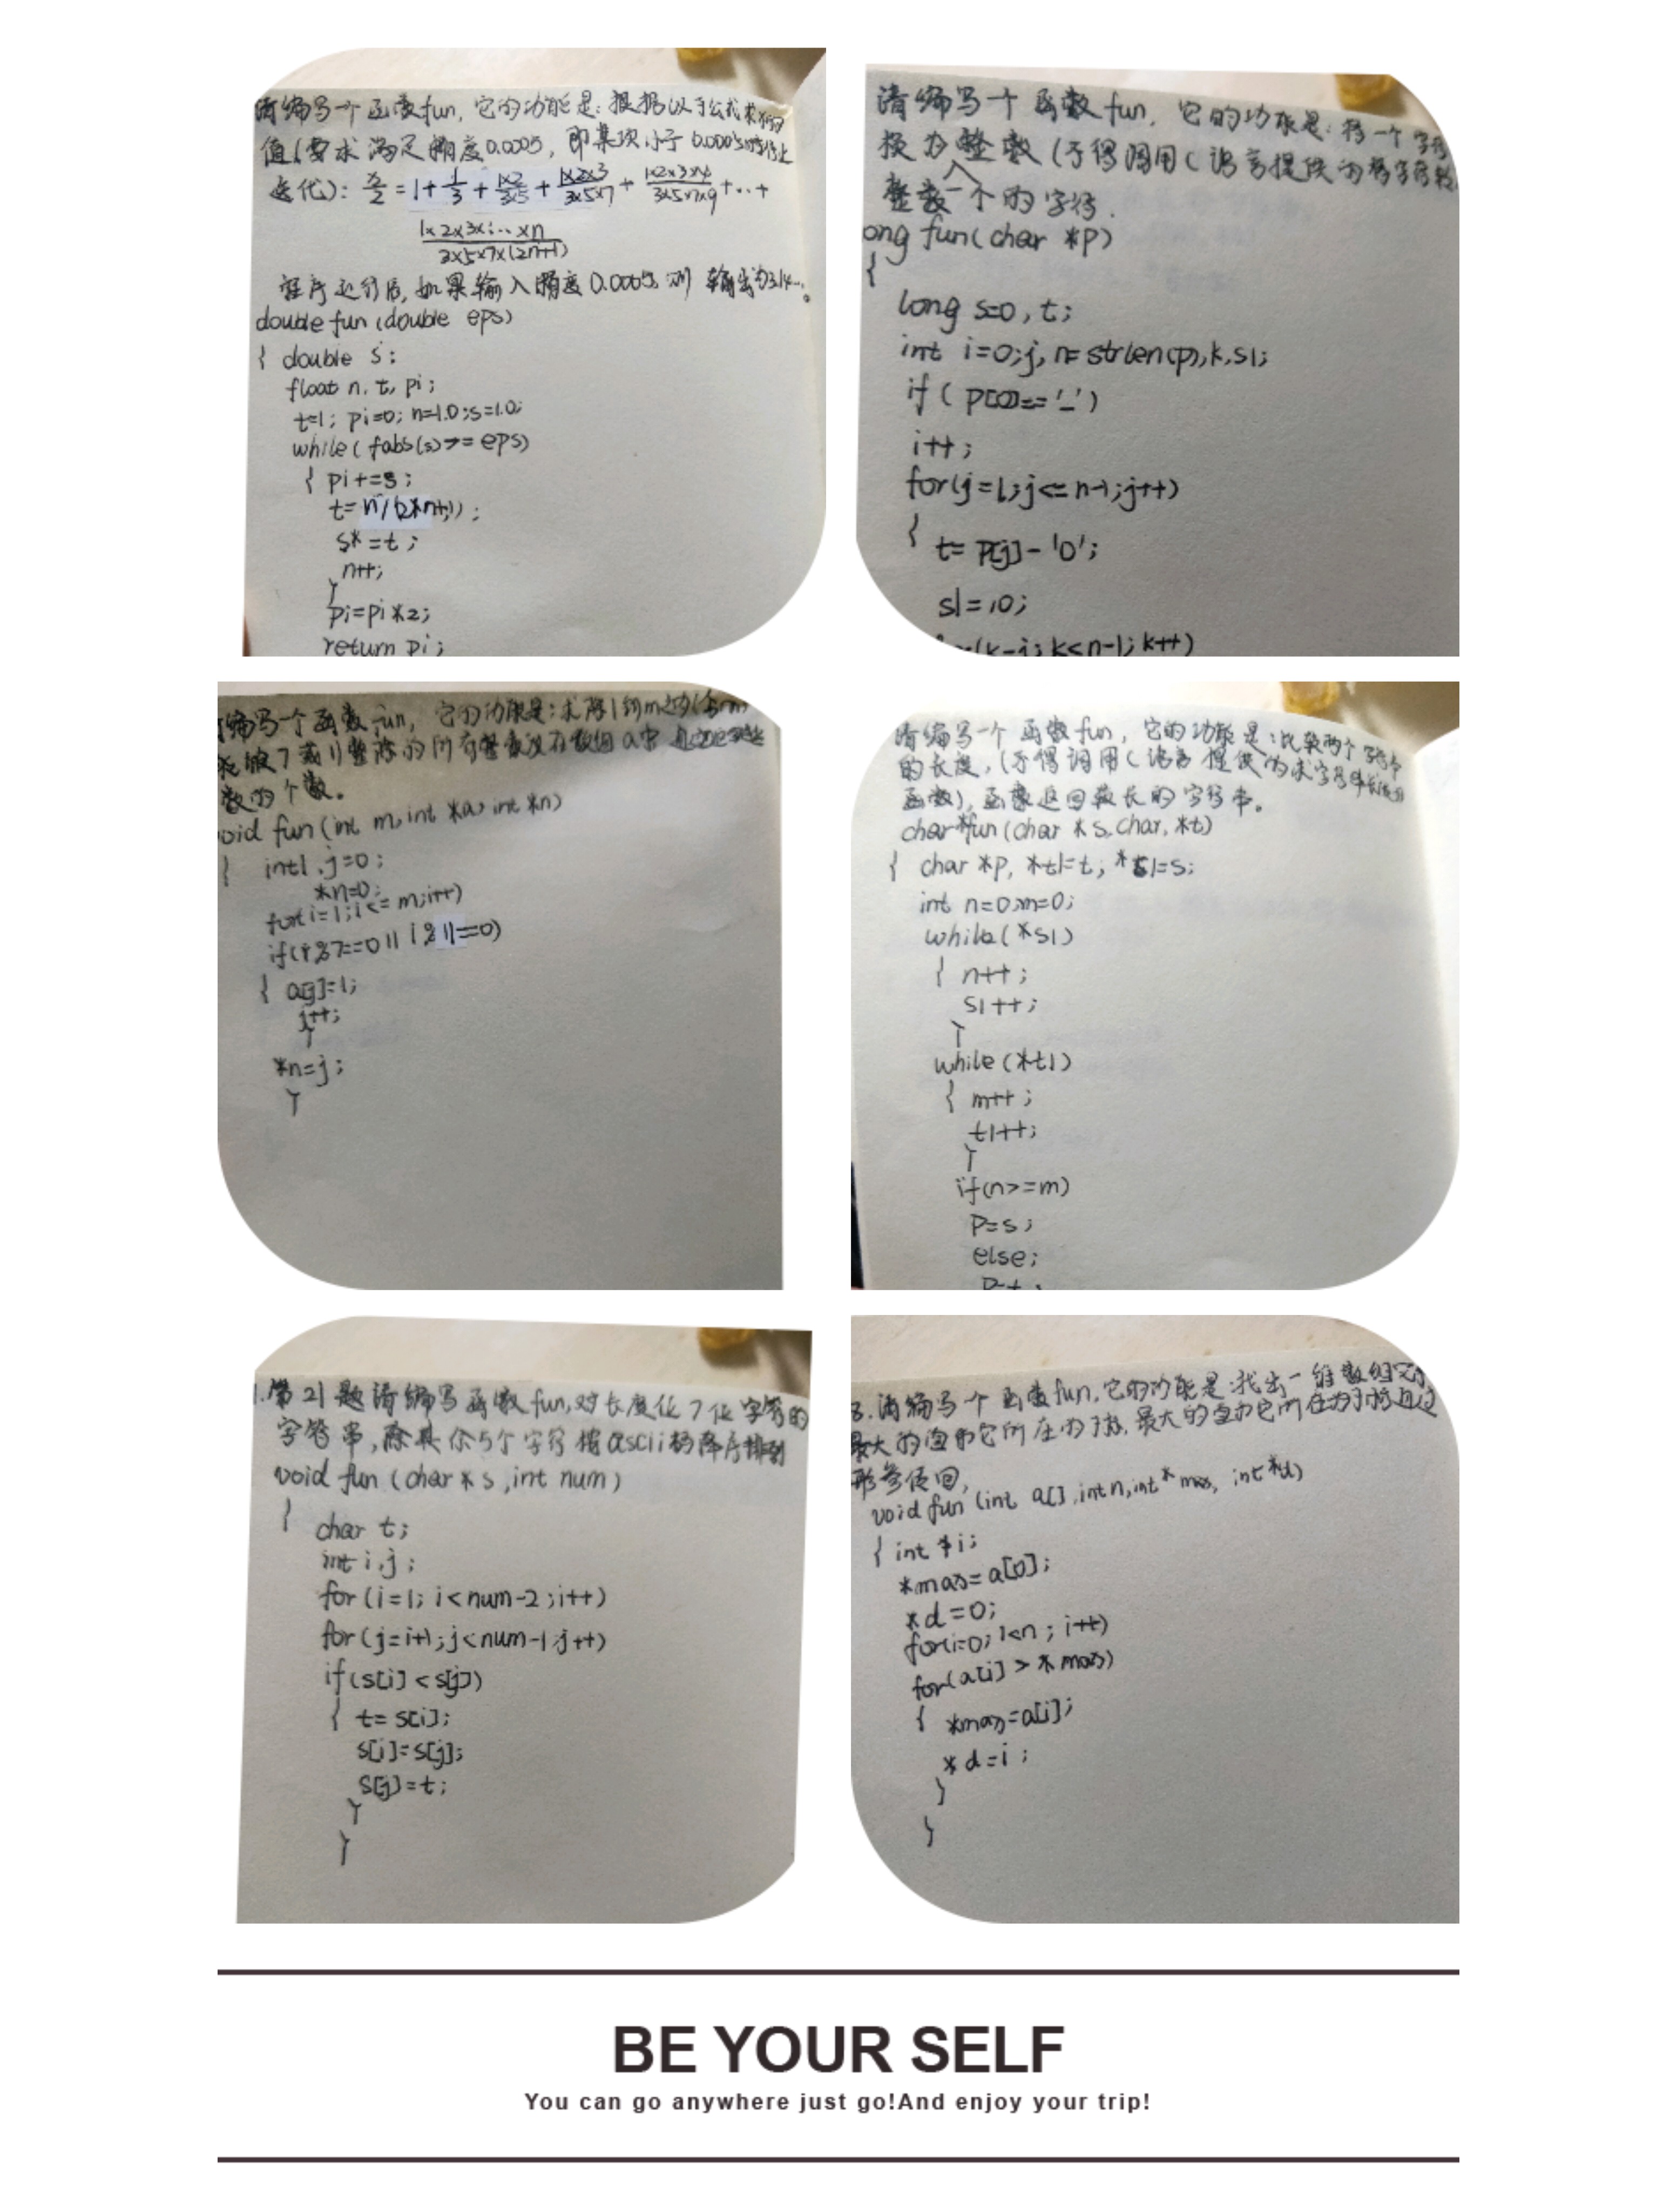 请编写一个函数fun,它的功能是:根据以下公式求π的
值(要求满足精度0.0005,即某项小于0.0005时停止
迭代):π/2=1+1/3+1×2/3×5+1×2×3/3×5×7+1×2×3×4/3×5×7×9+...+
1×2×3×...×n/3×5×7×(2n+1)
程序运行后,如果输入精度0.0005,则输出为3.14...。
double fun(double eps)
{ double s;
float n, t, pi;
t=1; pi=0; n=1.0; s=1.0;
while(fabs(s)>=eps)
{ pi+=s;
t=n/(2*n+1);
s*=t;
n++;
}
pi=pi*2;
return pi;
请编写一个函数fun,它的功能是:将一个字符
换为整数(不得调用C语言提供的将字符
整数一个的字符.
ong fun(char *p)
{
long s=0, t;
int i=0;j, n=strlen(p),k,s1;
if(p[0]=='-')
i++;
for(j=1;j<=n-1;j++)
{
t=p[j]-'0';
s1=10;
(k=j;k<n-1;k++)
编写一个函数fun,它的功能是:求除1到m之内(含m)
能被7或11整除的所有整数放在数组a中
数的个数。
oid fun(int m,int *a,int *n)
{ int1,j=0;
*n=0;
for(i=1;i<=m;i++)
if(i%7==0||i%11==0)
{ a[j]=1;
j++;
}
*n=j;
}
请编写一个函数fun,它的功能是:比较两个字符串
的长度,(不得调用C语言提供的求字符串长度的
函数),函数返回较长的字符串。
char *fun(char *s,char,*t)
{ char *p, *t1=t, *s1=s;
int n=0;m=0;
while(*s1)
{ n++;
s1++;
}
while(*t1)
{ m++;
t1++;
}
if(n>=m)
p=s;
else;
p=t;
1.第21题请编写函数fun,对长度位7位字符的
字符串,除其余5个字符按ascii码降序排列
void fun(char *s,int num)
{
char t;
int i,j;
for(i=1; i<num-2;i++)
for(j=i+1;j<num-1;j++)
if(s[i]<s[j])
{ t=s[i];
s[i]=s[j];
s[j]=t;
}
}
8.请编写一个函数fun,它的功能是:找出一维数组元
最大的值和它所在的下标,最大的值和它所在的下标通过
形参传回,
void fun(int a[],int n,int *max, int *d)
{ int *i;
*max=a[0];
*d=0;
for(i=0;i<n;i++)
for(a[i]>*max)
{ *max=a[i];
*d=i;
}
}
BE YOUR SELF
You can go anywhere just go!And enjoy your trip!